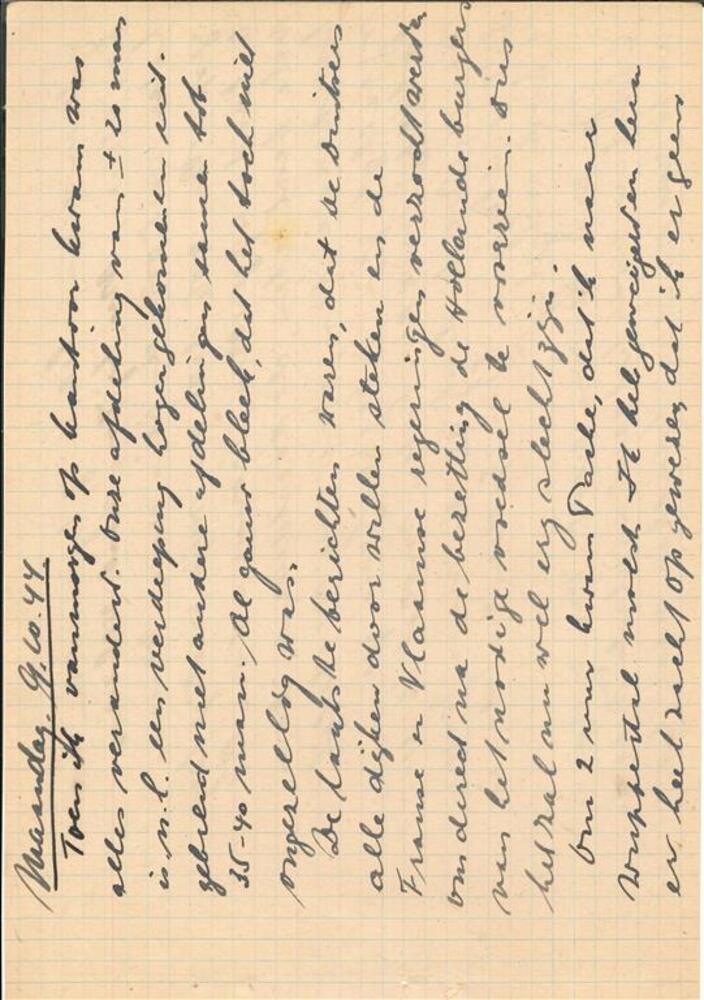 Maandag 9.10.44
Toen ik vanmorgen op kantoor kwam was
alles veranderd. Onze afdeling van ± 20 man
is n.l. een verdieping hoger gekomen en uit-
gebreid met andere afdelingen samen tot
35-40 man. Al gauw bleek, dat het toch niet
ongezellig was.
De laatste berichten waren, dat de Duitsers
alle dijken door willen steken en de
Franse en Vlaamse regeringen verzocht werden
om direct na de bezetting de Hollandse burgers
van het nodige voedsel te voorzien. Dus
het zal nu wel erg slecht zijn.
Om 2 uur kwam, dat ik naar
Wuppertal moest. Ik heb geweigerd en hem
er heel zacht op gewezen, dat ik er geen